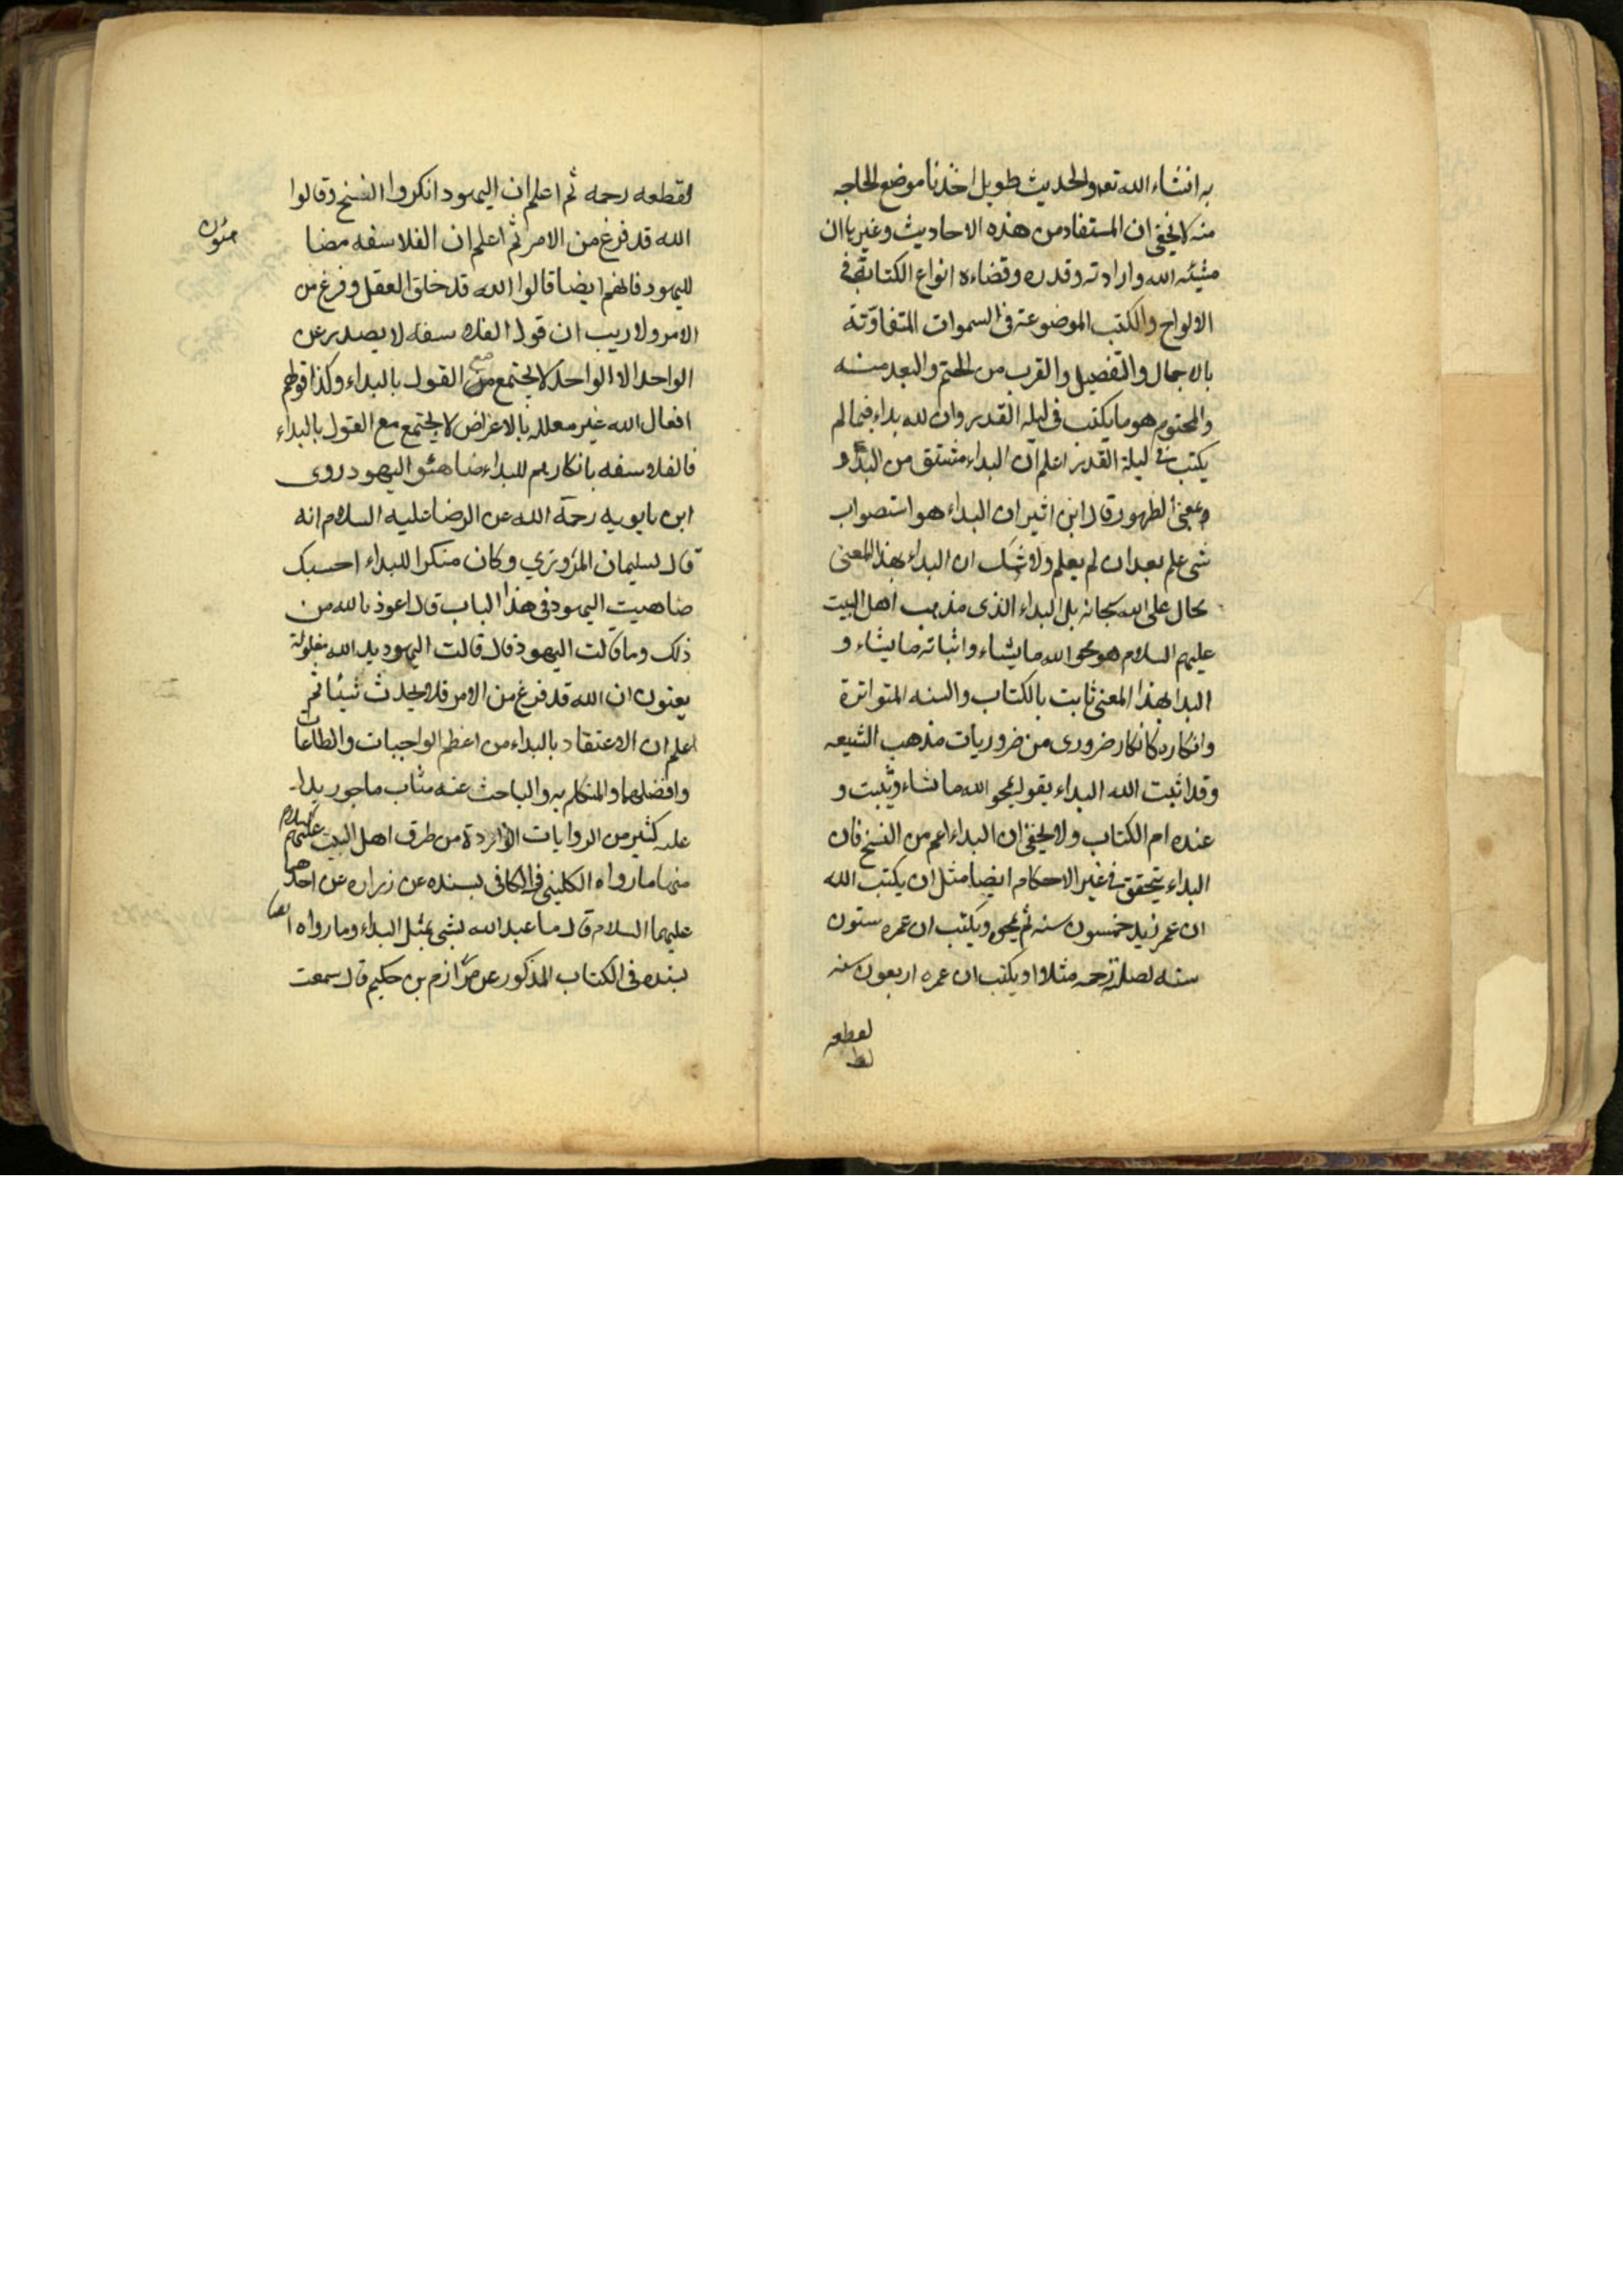 به انشاء الله تعه والحديث طويل اخذنا موضع الحاجه
منه لا يخفى ان المستفاد من هذه الاحاديث وغيرها ان
مشيئه الله وارادته وقدره وقضاءه انواع الكتابة فى
الالواح والكتب الموضوعة فى السموات المتفاوته
بالاجمال والتفصيل والقرب من الحتم والبعد منه
والمحتوم هو ما يكتب فى ليله القدر وان لله بداء فيما لم
يكتب فى ليلة القدر اعلم ان البداء مشتق من البدو
بمعنى الظهور قال ابن اثير ان البداء هو استصواب
شى علم بعد ان لم يعلم ولا شك ان البداء بهذا المعنى
محال على الله سبحانه بل البداء الذى مذهب اهل البيت
عليهم السلام هو محو الله ما يشاء واثباته ما يشاء و
البدا بهذا المعنى ثابت بالكتاب والسنه المتواترة
وانكاره كانكار ضرورى من ضروريات مذهب الشيعه
وقد اثبت الله البداء بقوله يمحو الله ما يشاء ويثبت و
عنده ام الكتاب ولا يخفى ان البداء اعم من النسخ فان
البداء يتحقق فى غير الاحكام ايضا مثل ان يكتب الله
ان عمر زيد خمسون سنه ثم يمحوه ويكتب ان عمره ستون
سنه لصلة رحمه مثلا او يكتب ان عمره اربعون سنه
لقطعه
لقطعه رحمه ثم اعلم ان اليهود انكروا النسخ وقالوا
الله قد فرغ من الامر ثم اعلم ان الفلاسفه مضا
هئون
لليهود فانهم ايضا قالوا الله قد خلق العقل وفرغ من
الامر ولا ريب ان قول الفلاسفه لا يصدر عن
الواحد الا الواحد لا يجتمع مع القول بالبداء وكذا قولهم
افعال الله غير معللة بالاغراض لا يجتمع مع القول بالبداء
فالفلاسفه بانكارهم للبداء ضاهئو اليهود روى
ابن بابويه رحمة الله عن الرضا عليه السلام انه
قال لسليمان المروزي وكان منكرا للبداء احسبك
ضاهيت اليهود فى هذا الباب قال اعوذ بالله من
ذلك وما قالت اليهود قال قالت اليهود يد الله مغلولة
يعنون ان الله قد فرغ من الامر فلا يحدث شيئا ثم
اعلم ان الاعتقاد بالبداء من اعظم الواجبات والطاعات
وافضلها والمتكلم به والباحث عنه مثاب ماجور يدل
عليه كثير من الروايات الواردة من طرق اهل البيت عليهم السلام
منها ما رواه الكلينى فى الكافى بسنده عن زراره عن احدهما
عليهما السلام قال ما عبد الله بشى بمثل البداء وما رواه ايضا
بسنده فى الكتاب المذكور عن مرازم بن حكيم قال سمعت